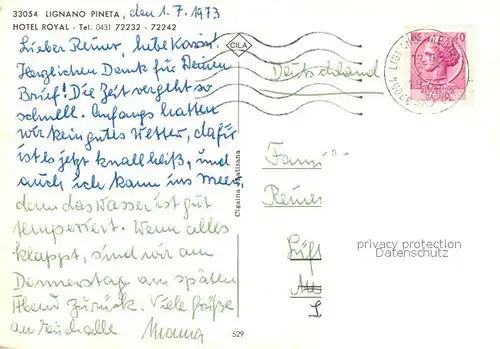 33054 LIGNANO PINETA, den 1.7.1973
HOTEL ROYAL - Tel. 0431 72232 - 72242
Lieber Reiner, liebe Karin!
Herzlichen Dank für Deinen
Brief! Die Zeit vergeht so
schnell. Anfangs hatten
wir kein gutes Wetter, dafür
ist es jetzt knallheiß, und
auch ich kann ins Meer,
denn das Wasser ist gut
temperiert. Wenn alles
klappt, sind wir am
Donnerstag am späten
Abend zurück. Viele Grüße
an Euch alle Mama
CILA
Deutschland
Fam.
Reiner
privacy protection
Datenschutz
529